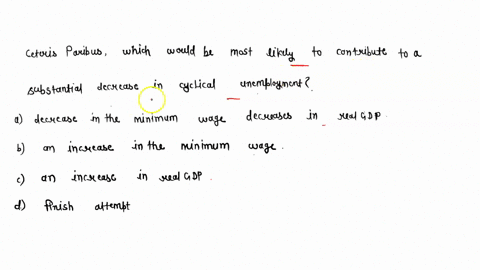 Cetoris Paribus, which would be most likely to contribute to a
substantial decrease in cyclical unemployment?
a) decrease in the minimum wage decreases in real GDP.
b) an increase in the minimum wage.
c) an increase in real GDP.
d) finish attempt